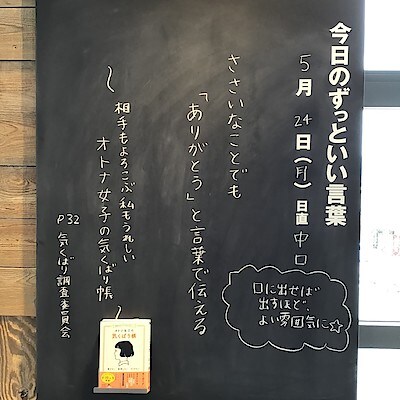 今日のずっといい言葉
5月24日(月)日直 中口
ささいなことでも
「ありがとう」と言葉で伝える
〜相手もよろこぶ 私もうれしい
オトナ女子の気くばり帳〜
P32 気くばり調査委員会
口に出せば
出すほど、
よい雰囲気に☆
気くばり帳